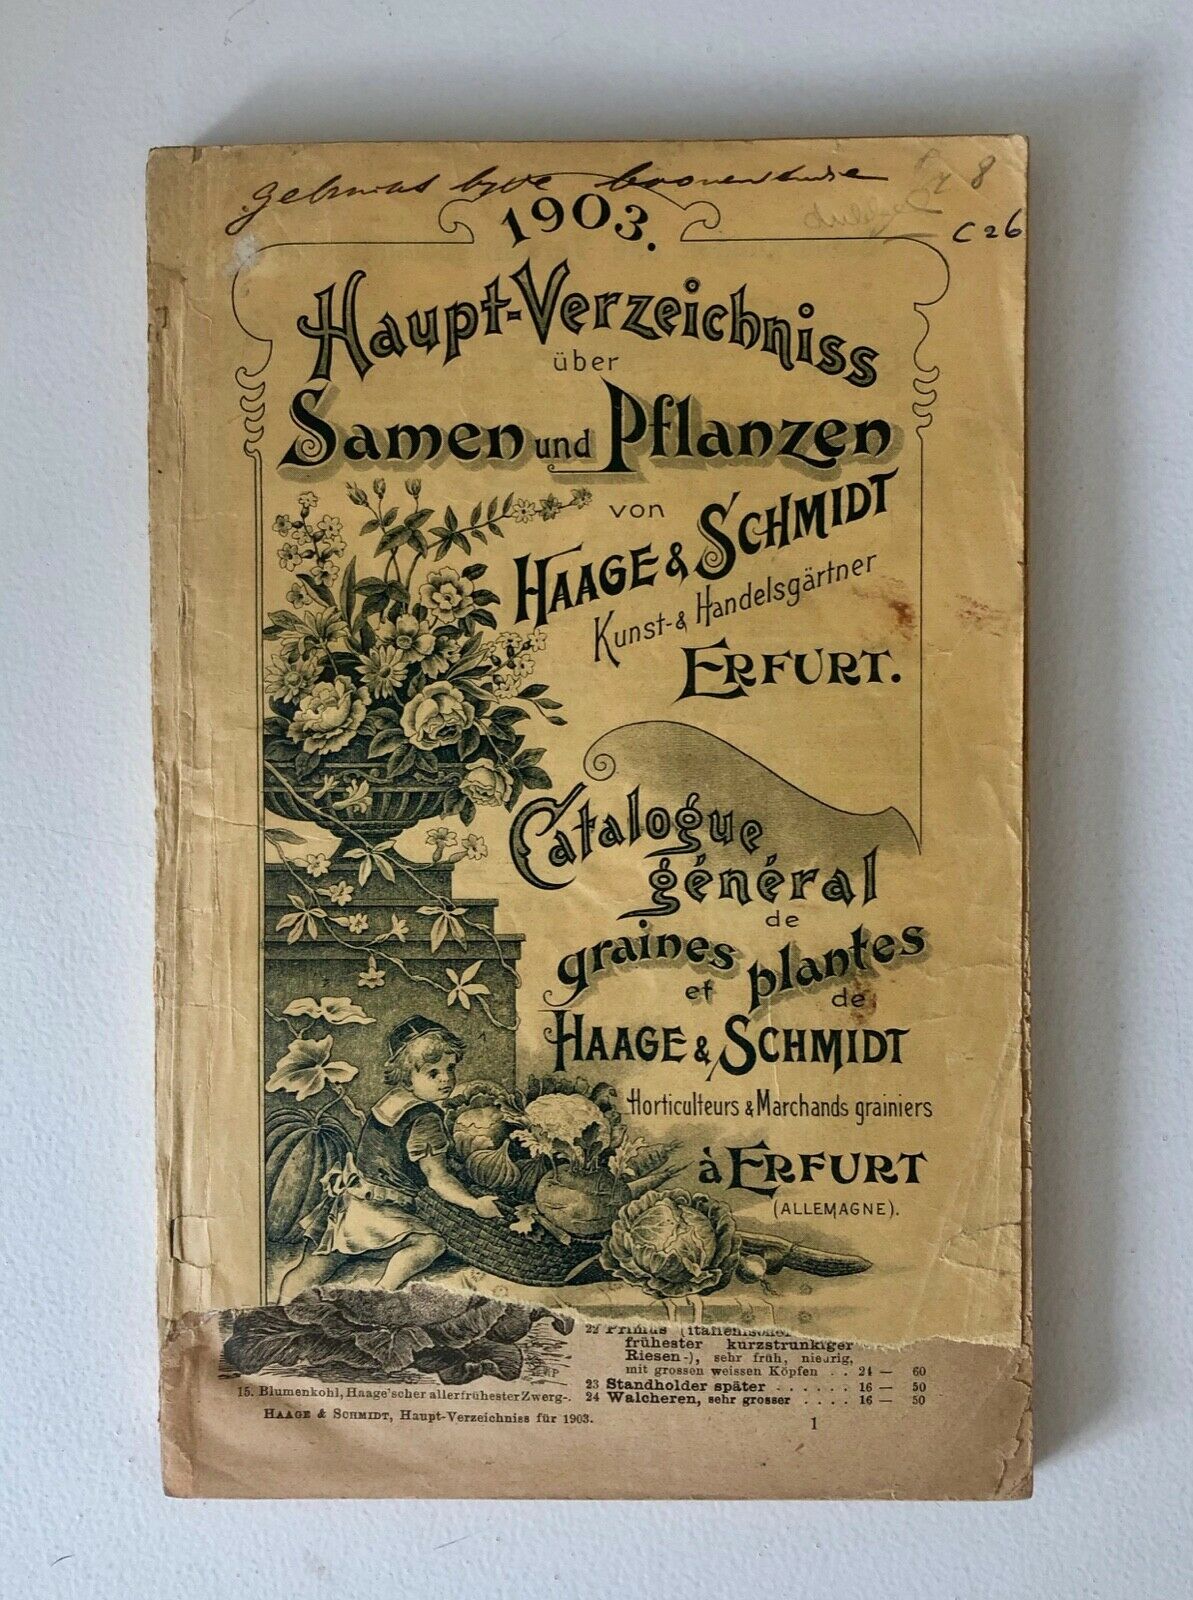 8
C 26
1903.
Haupt-Verzeichniss
über
Samen und Pflanzen
von
HAAGE & SCHMIDT
Kunst- & Handelsgärtner
ERFURT.
Catalogue
général
de
graines
et plantes
de
HAAGE & SCHMIDT
Horticulteurs & Marchands grainiers
à ERFURT
(ALLEMAGNE).
22 Primus (italienischer
frühester kurzstrunkiger
Riesen-), sehr früh, niedrig,
mit grossen weissen Köpfen . . 24 — 60
15. Blumenkohl, Haage'scher allerfrühester Zwerg-.
23 Standholder später . . . . . . 16 — 50
24 Walcheren, sehr grosser . . . . 16 — 50
HAAGE & SCHMIDT, Haupt-Verzeichniss für 1903.
1